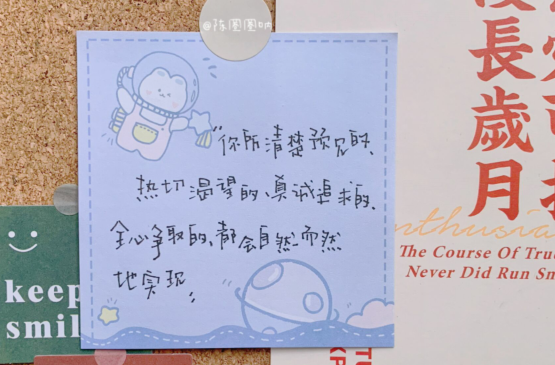 @陈圆圆吶
"你所清楚预见的、
热切渴望的、真诚追求的、
全心争取的,都会自然而然
地实现"
keep
smil
長
歲
月
The Course Of Tru
Never Did Run Sm